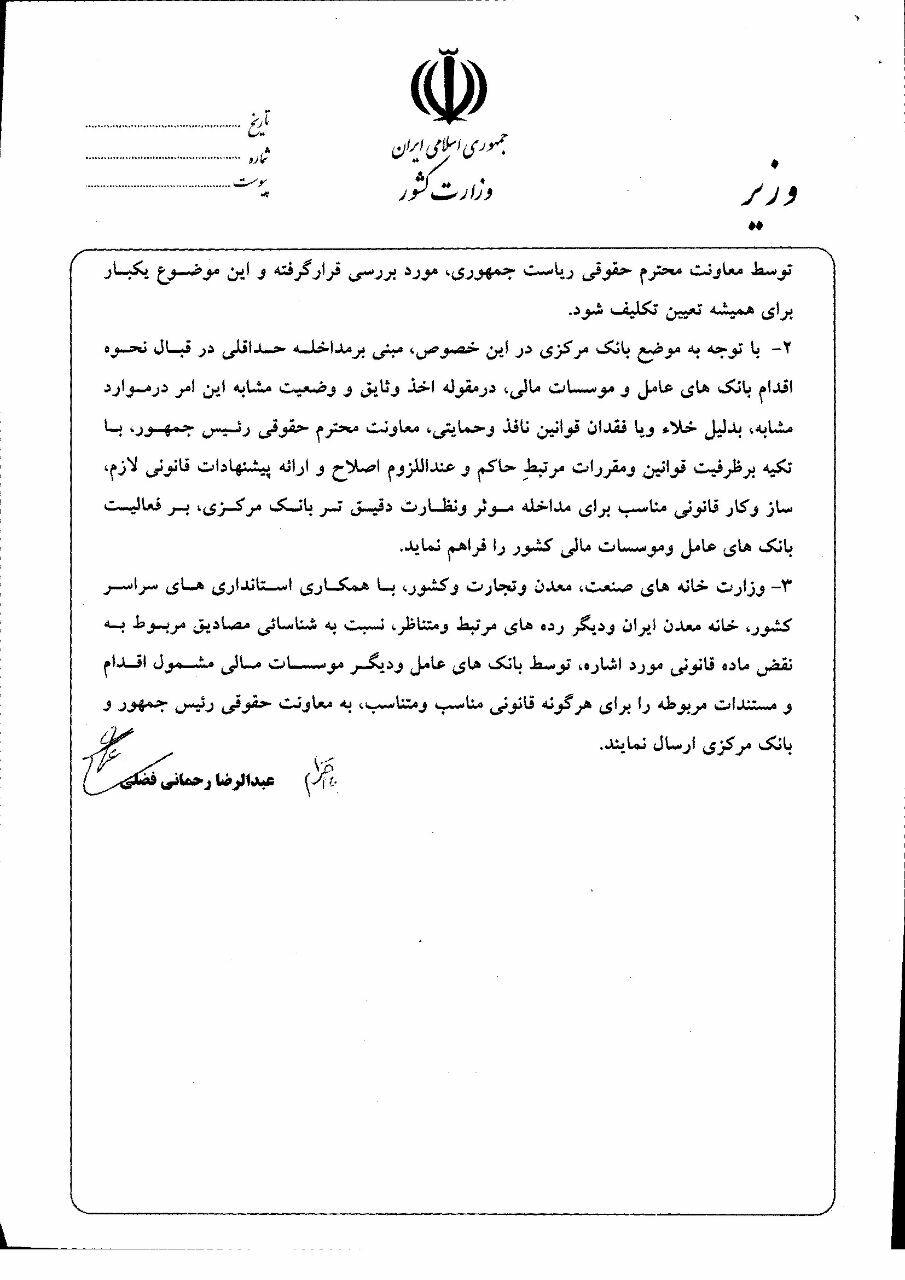 جمهوری اسلامی ایران
وزارت کشور
وزیر
تاریخ
شماره
پیوست
توسط معاونت محترم حقوقی ریاست جمهوری، مورد بررسی قرارگرفته و این موضوع یکبار
برای همیشه تعیین تکلیف شود.
۲- با توجه به موضع بانک مرکزی در این خصوص، مبنی برمداخله حداقلی در قبال نحوه
اقدام بانک های عامل و موسسات مالی، درمقوله اخذ وثایق و وضعیت مشابه این امر درموارد
مشابه، بدلیل خلاء ویا فقدان قوانین نافذ وحمایتی، معاونت محترم حقوقی رئیس جمهور، با
تکیه برظرفیت قوانین ومقررات مرتبط حاکم و عنداللزوم اصلاح و ارائه پیشنهادات قانونی لازم،
ساز وکار قانونی مناسب برای مداخله موثر ونظارت دقیق تر بانک مرکزی، بر فعالیت
بانک های عامل وموسسات مالی کشور را فراهم نماید.
۳- وزارت خانه های صنعت، معدن وتجارت وکشور، با همکاری استانداری های سراسر
کشور، خانه معدن ایران ودیگر رده های مرتبط ومتناظر، نسبت به شناسائی مصادیق مربوط به
نقض ماده قانونی مورد اشاره، توسط بانک های عامل ودیگر موسسات مالی مشمول اقدام
و مستندات مربوطه را برای هرگونه قانونی مناسب ومتناسب، به معاونت حقوقی رئیس جمهور و
بانک مرکزی ارسال نمایند.
عبدالرضا رحمانی فضلی